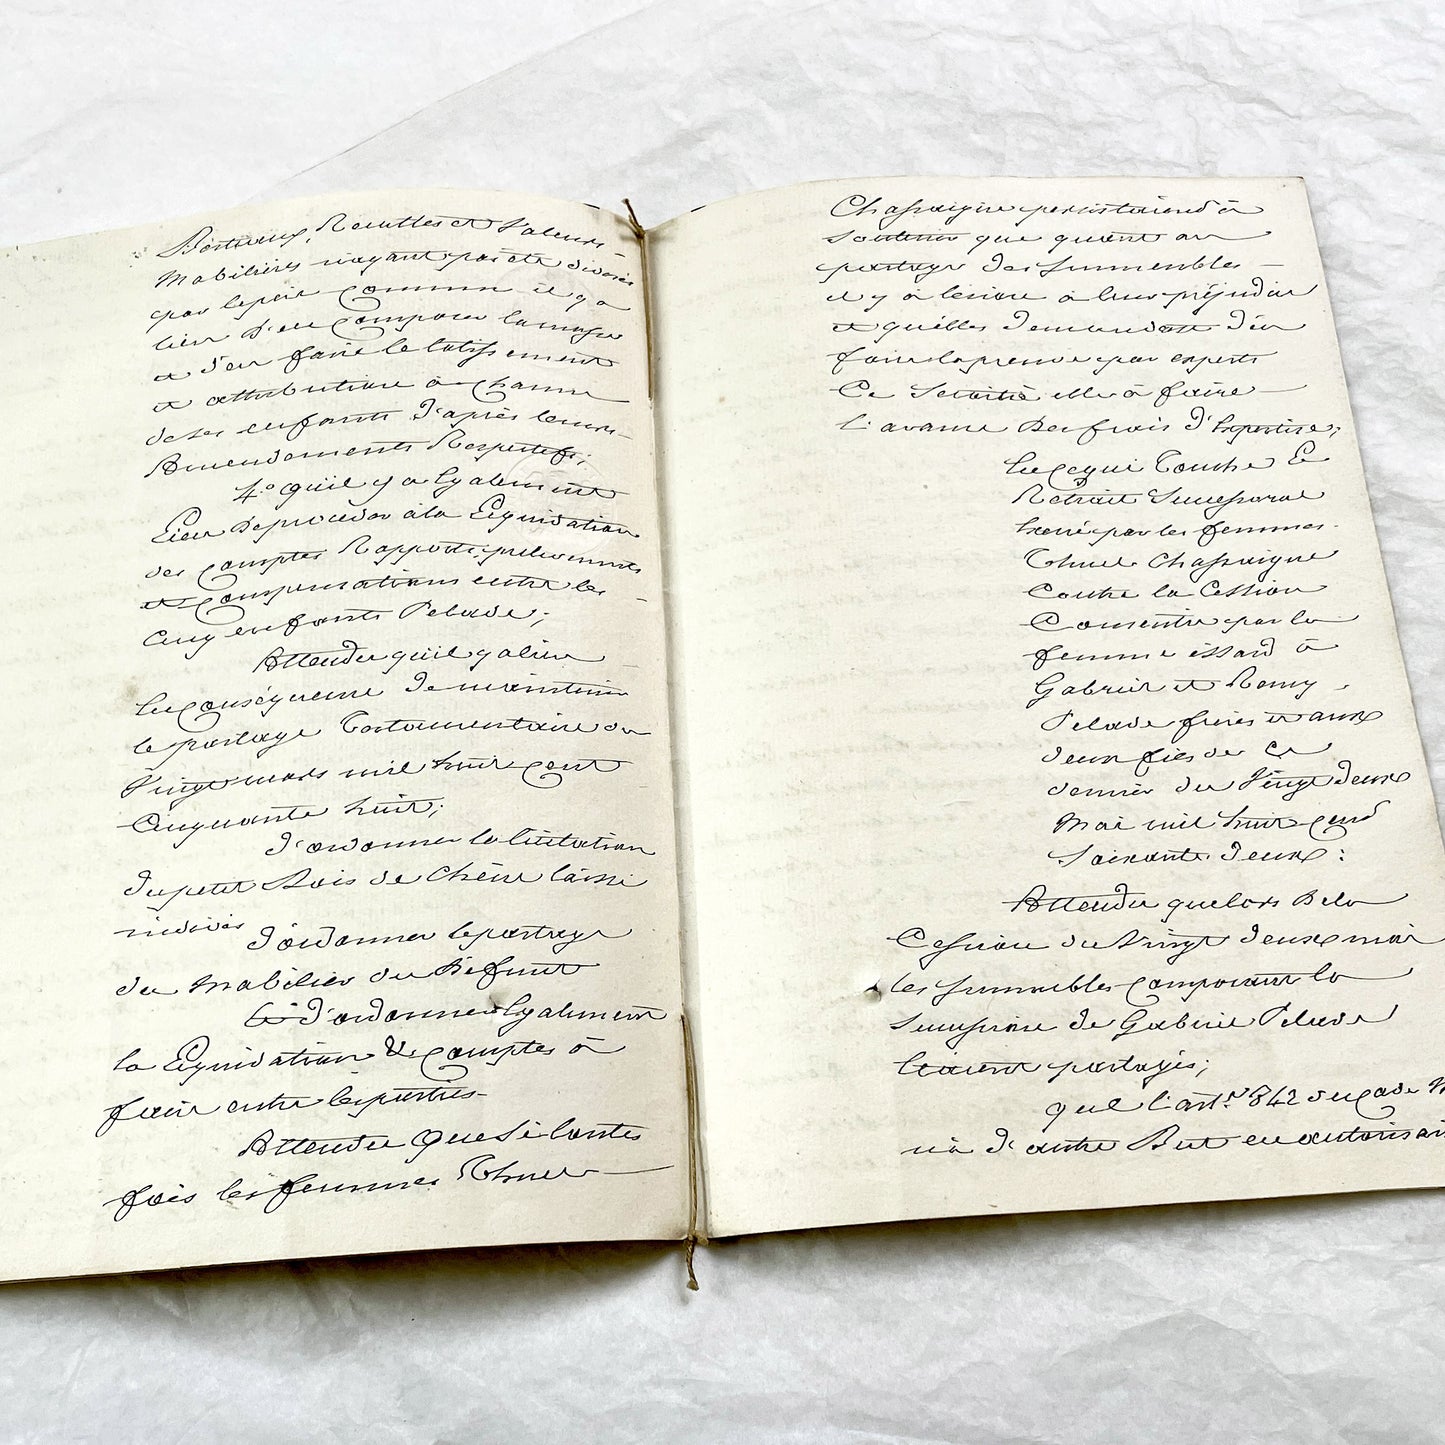 Bestiaux, Récoltes et Valeurs
Mobilières n'ayant pas été divisées
par le père commun il y a
lieu d'en composer la masse
et d'en faire le lotissement
et attribution à chacun
de ses enfants d'après leurs
Amendements Respectifs;
4º qu'il y a également
Lieu de procéder à la Liquidation
des comptes Rapports, prélevements
et compensations entre les
cinq enfants Pelade;
Attendu qu'il y a lieu
En conséquence de maintenir
le partage Testamentaire du
Vingt mars mil huit cent
Cinquante huit;
D'ordonner la licitation
du petit Bois de Chêne laissé
indivis
d'ordonner le partage
du Mobilier du Défunt
Et d'ordonner également
la Liquidation des comptes à
faire entre les parties
Attendu que si toutes
fois les femmes Thuel
Chassaigne persistaient à
soutenir que quant au
partage des Immeubles
il y a lésion à leur préjudice
et qu'elles demandent d'en
faire la preuve par experts
Ce serait à elles à faire
l'avance des frais d'Expertise;
En ce qui Touche Le
Retrait Successoral
exercé par les femmes
Thuel Chassaigne
Contre la Cession
Consentie par la
femme Issard à
Gabriel et Remy
Pelade frères et aux
deux fils de Ce
dernier du Vingt deux
Mai mil huit cent
Soixante deux:
Attendu que lors de la
Cession du Vingt deux mai
les Immeubles composant la
Succession de Gabriel Pelade
étaient partagés;
que l'art. 842 du Code N
n'a d'autre But en autorisan